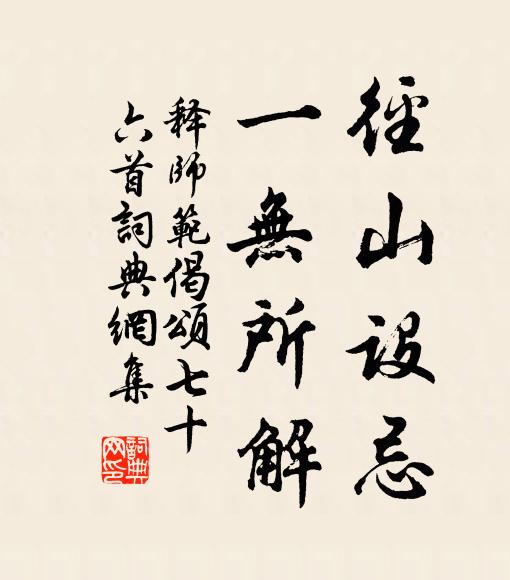 徑山設忌
一無所解
释師範偈頌七十
六首詞典網集
詞典网印